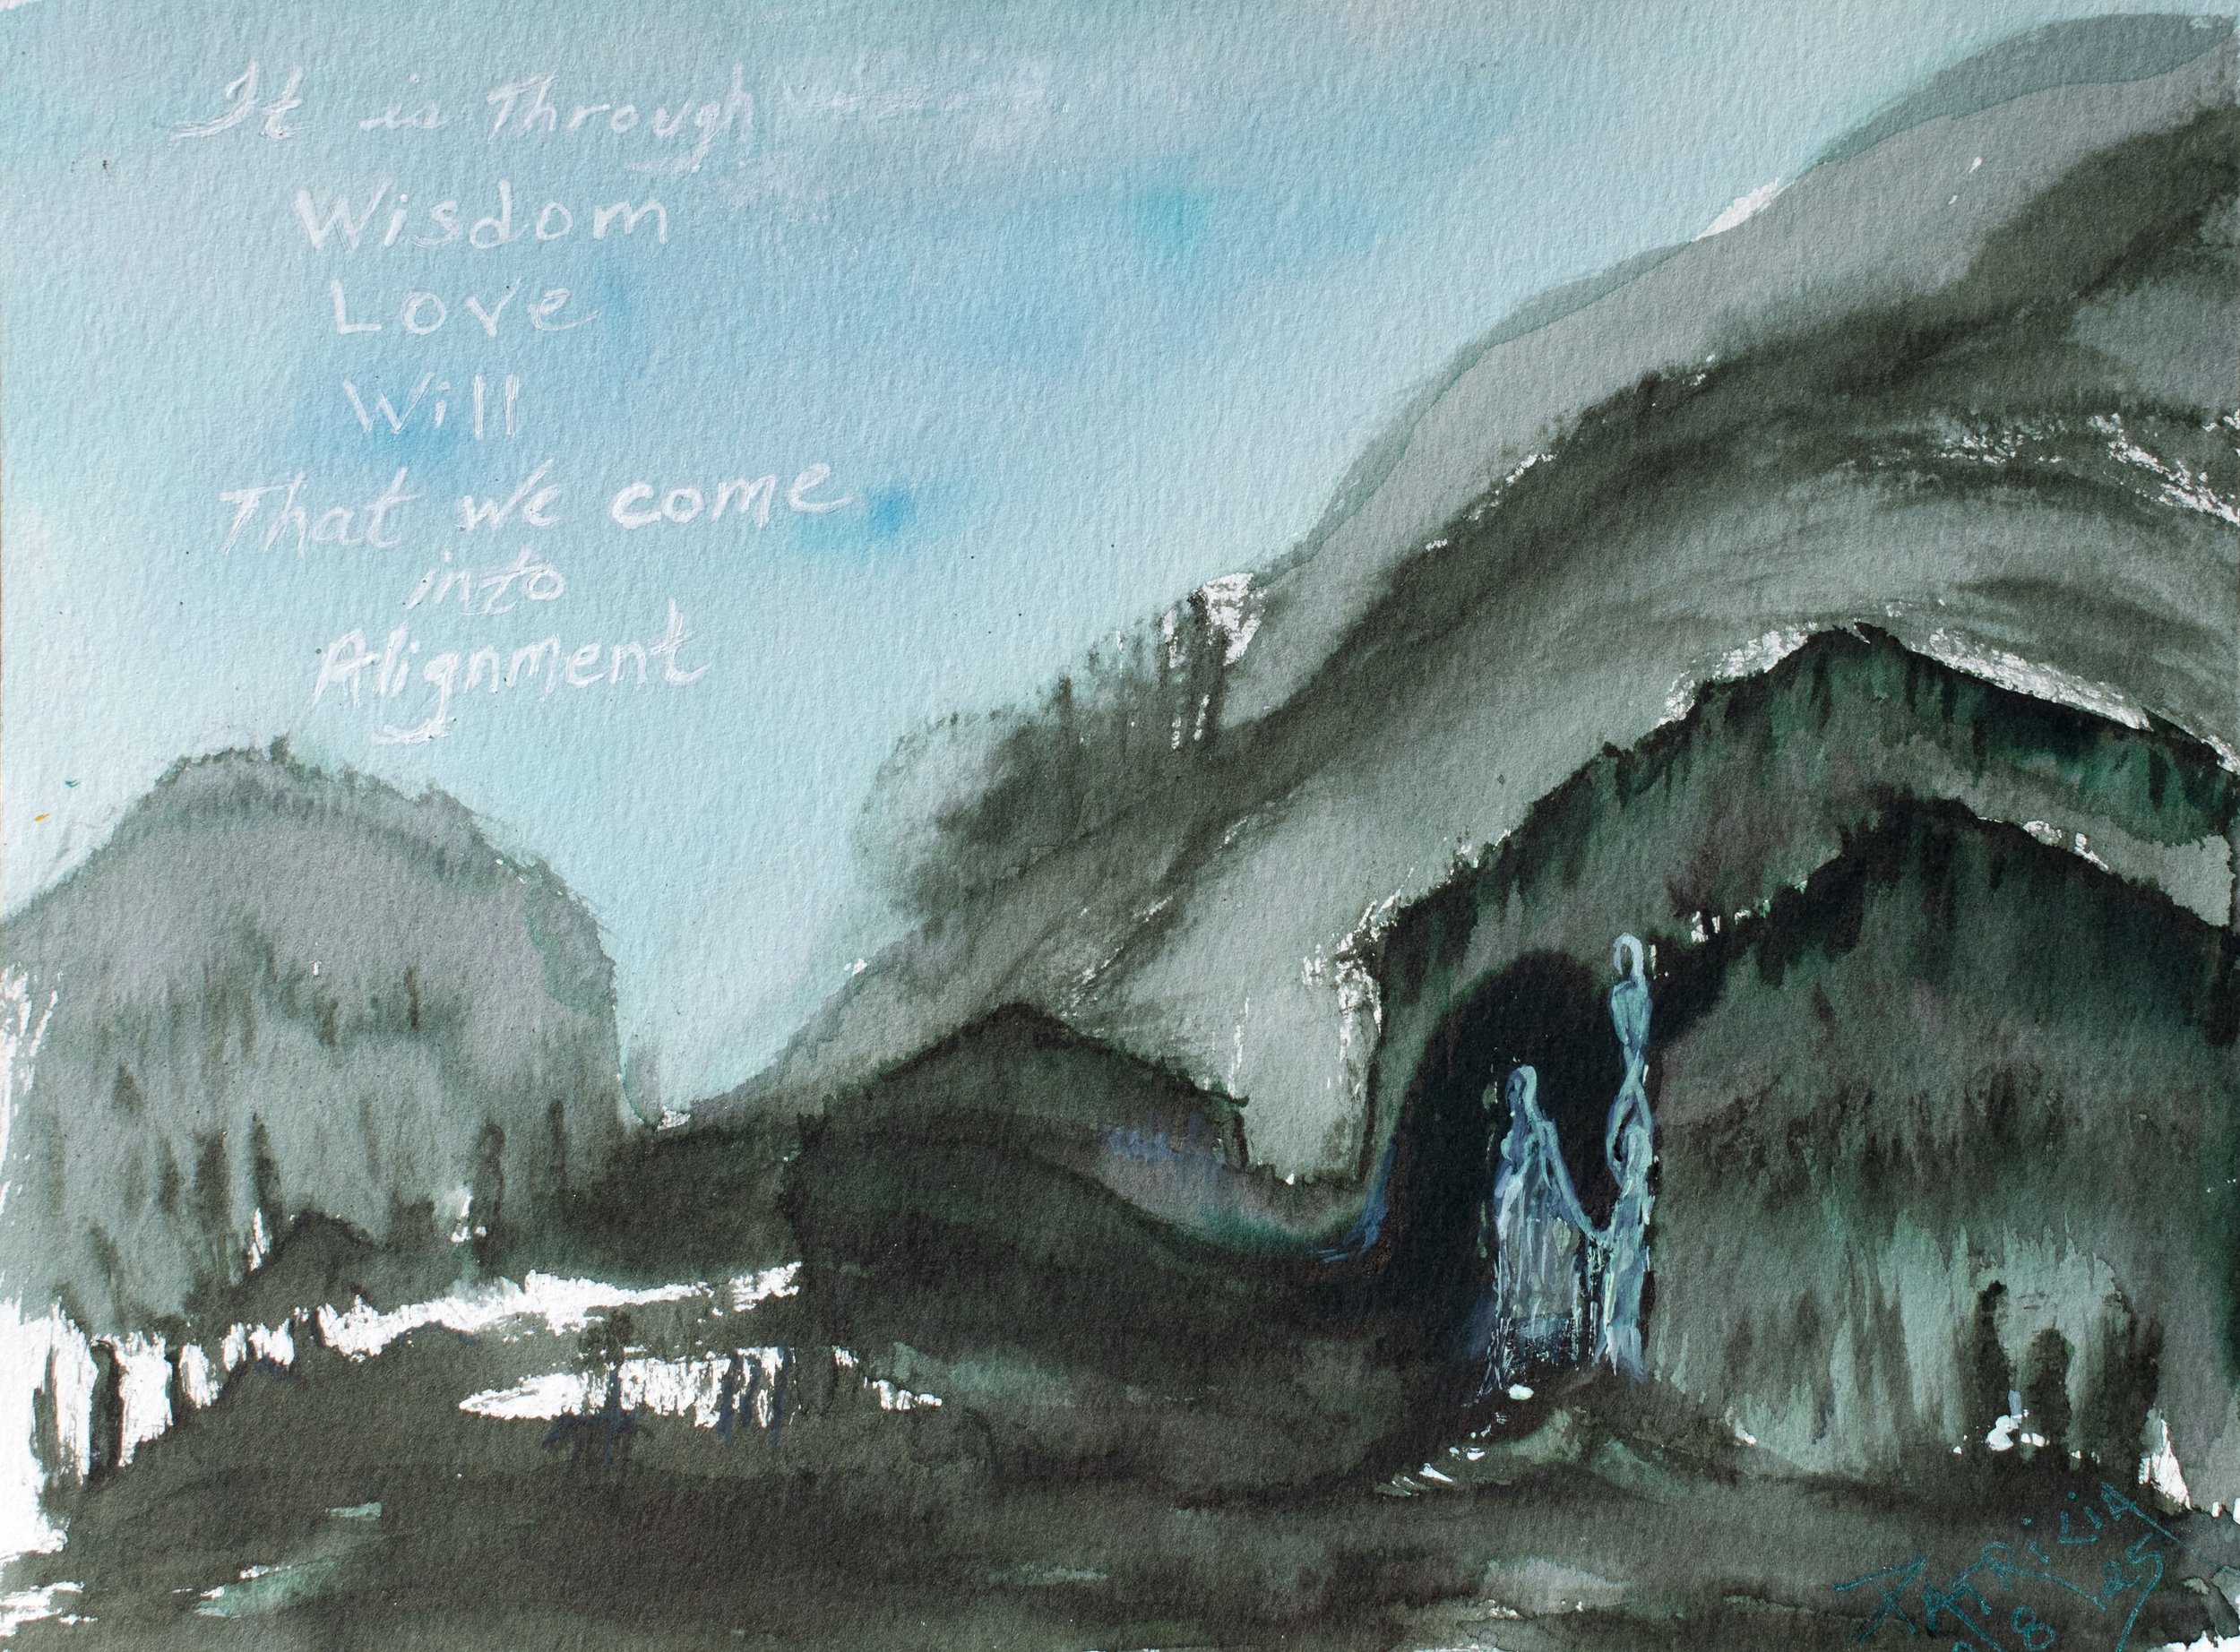 It is Through
Wisdom
Love
Will
That we come
into
Alignment
PATRICIA
8 25